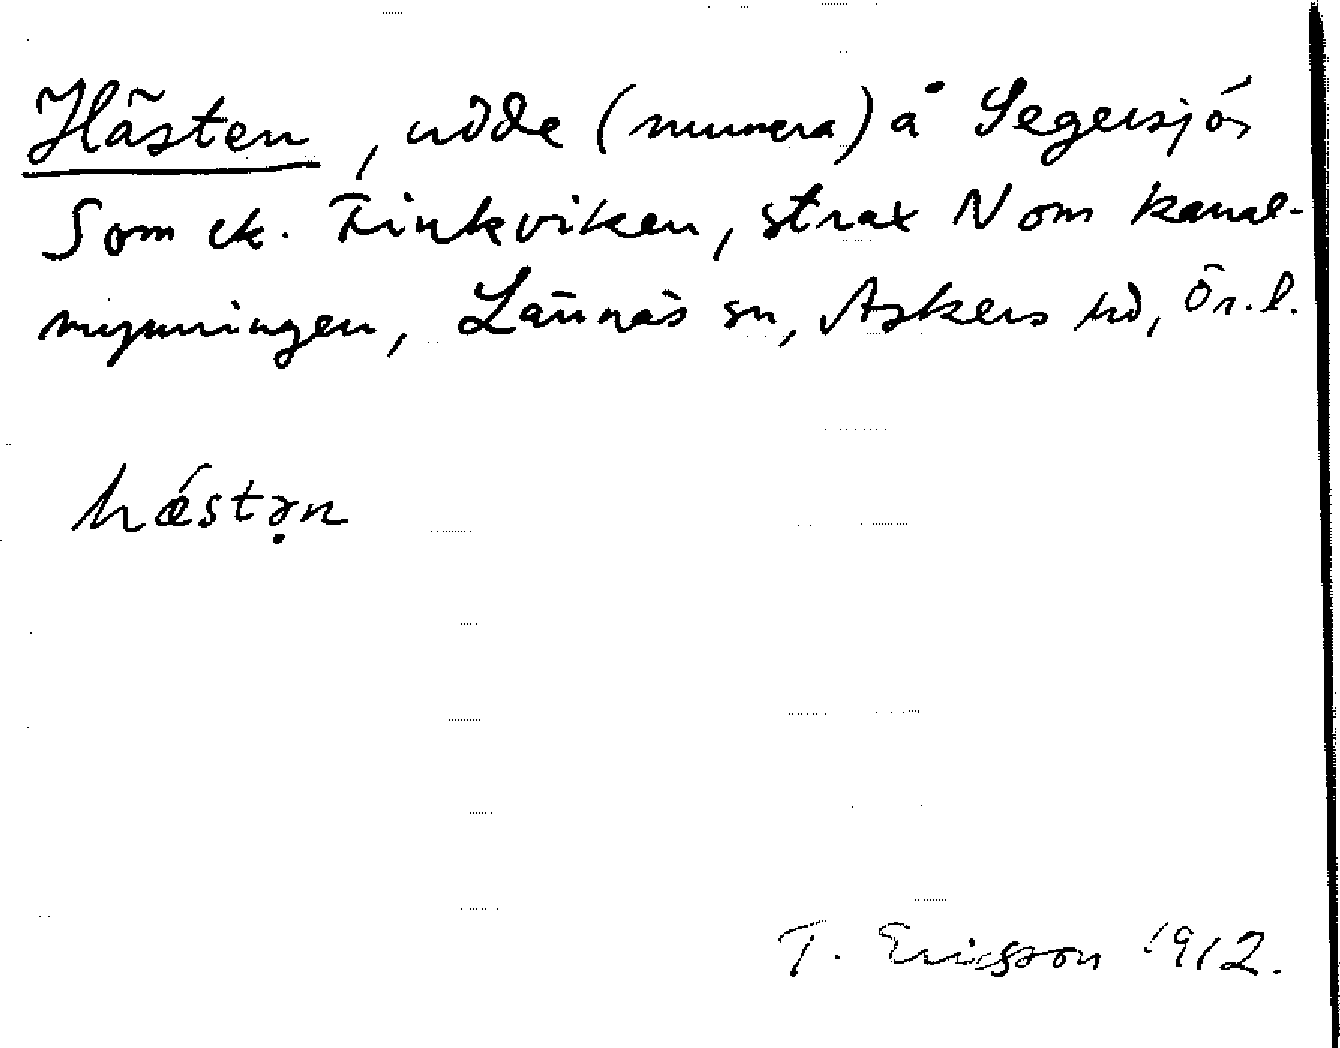 Hästen, udde (numera) å Segersjös
S om ek. Finkviken, strax N om kanal-
mynningen, Lännäs sn, Askers hd, Ör. l.
hǽstə̣n
T. Ericsson 1912.